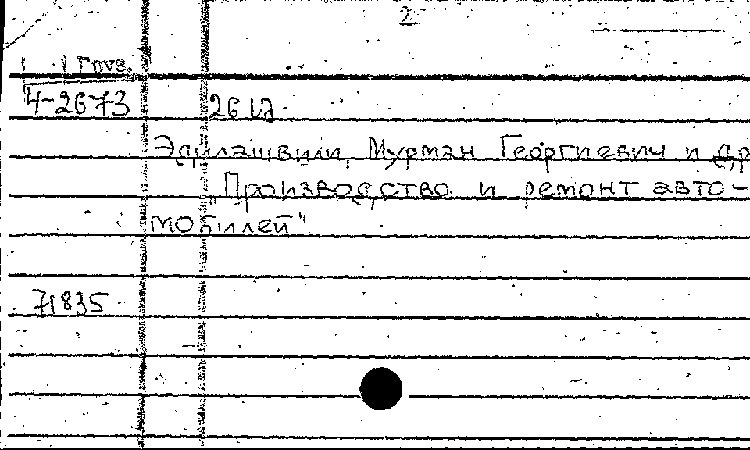 2
Груз.
4-2673 2612
Эдилашвили, Мурман Георгиевич и др
"Производство и ремонт авто-
мобилей"
71835